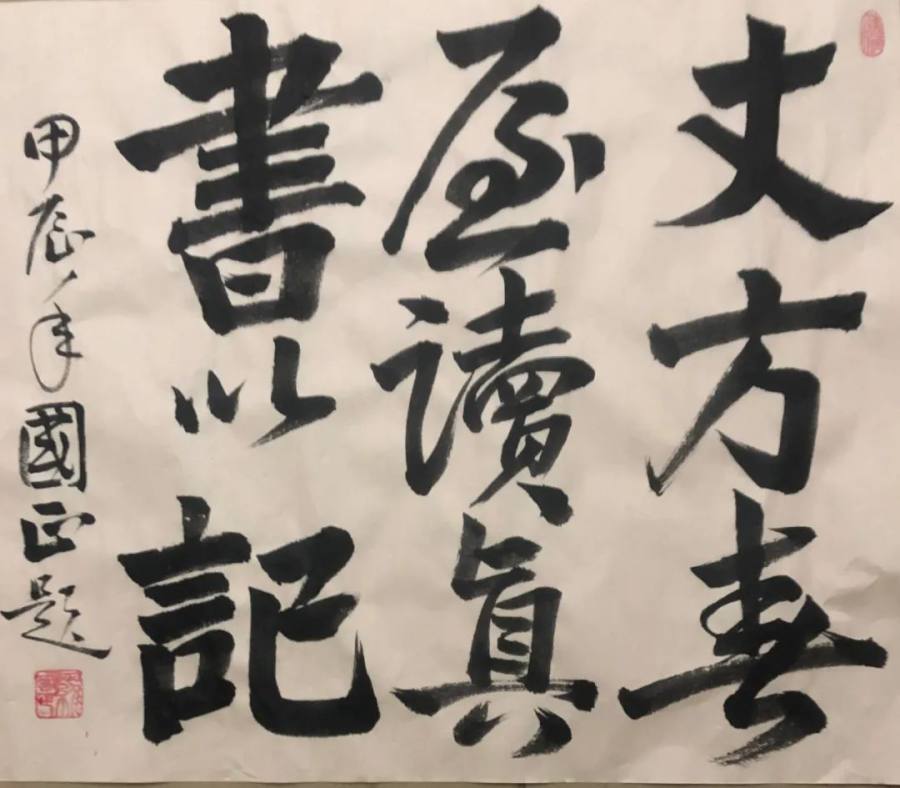 丈方春
屋讀真
書以記
甲辰年國正題